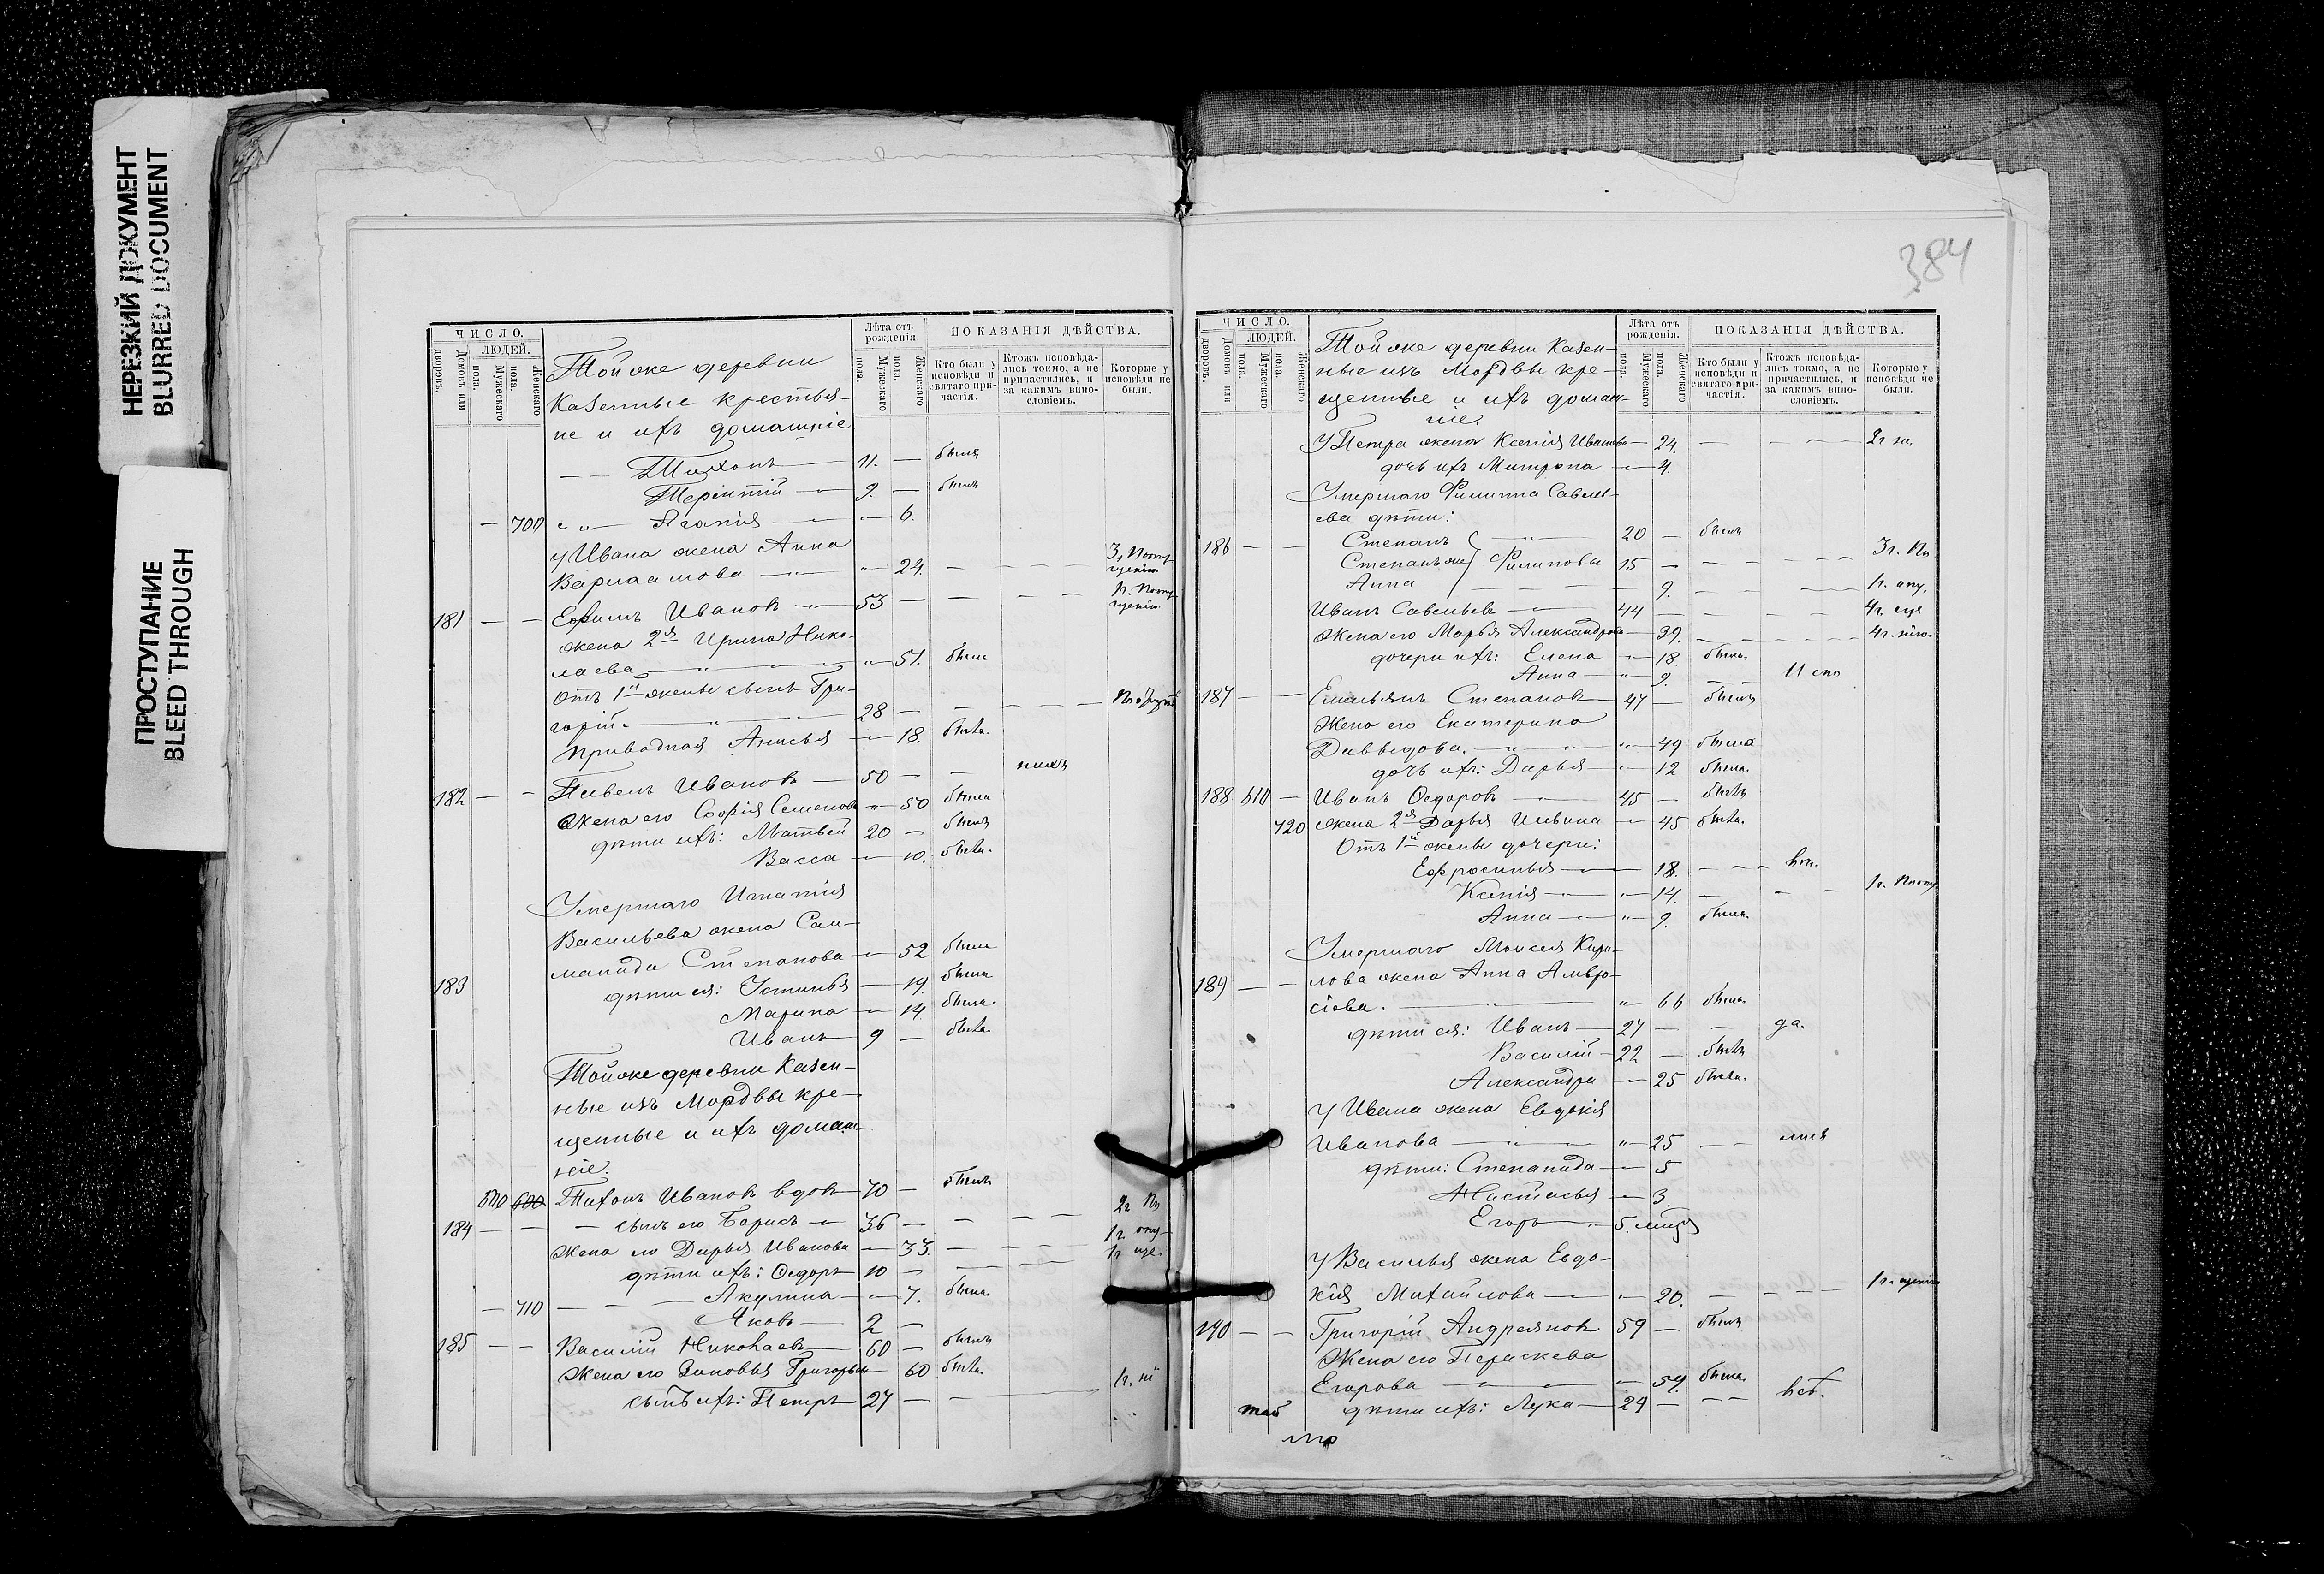 НЕРЕЗКИЙ ДОКУМЕНТ
BLURRED DOCUMENT
ПРОСТУПАНИЕ
BLEED THROUGH
ЧИСЛО.
ЛЮДЕЙ.
Домовъ или дворовъ.
Мужескаго пола.
Женскаго пола.
Лѣта отъ рожденія
Мужескаго пола.
Женскаго пола.
ПОКАЗАНІЯ ДѢЙСТВА.
Кто были у исповѣди и святаго причастія.
Ктожъ исповѣдались токмо, а не причастились, и за какимъ винословіемъ.
Которые у исповѣди не были.
Тойже деревни
казенные крестья-
не и ихъ домашніе
Тихонъ 11. — былъ
Терентій 9. — былъ
— 700 Агапія 6.
У Ивана жена Анна
Варлаамова 24. — — —
181 — — Ефимъ Иванов 53 — — —
жена 2я Ирина Нико-
лаева 51. была
Отъ 1й жены сынъ Гри-
горій 28 — — —
приводная Анисья 18. была.
182 — — Павелъ Иванов 50 — —
жена его Софія Семенова 50 была
дѣти ихъ: Матвей 20 — былъ
Васса 10. была.
Умершаго Игнатія
Васильева жена Сал-
манида Степанова 52 была
183 дѣти ея: Устинья 19. была
Марина 14. была.
Иванъ 9 —
Тойже деревни казен-
ные изъ Мордвы кре-
щенные и ихъ домаш-
ніе.
Тихонъ Иванов вдов 70 — былъ
184 — — сынъ его Борисъ 36 — — —
Жена его Дарья Иванова 33. — — —
дѣти ихъ: Ѳедоръ 10 — — —
— 710 Акулина 7. была.
Яковъ 2 —
185 — — Василій Николаевъ 60 — былъ
Жена его Зиновья Григорьева 60 была.
сынъ ихъ: Петръ 27 — —
384
ЧИСЛО.
ЛЮДЕЙ.
Домовъ или дворовъ.
Мужескаго пола.
Женскаго пола.
Лѣта отъ рожденія.
Мужескаго пола.
Женскаго пола.
ПОКАЗАНІЯ ДѢЙСТВА.
Кто были у исповѣди и святаго причастія.
Ктожъ исповѣдались токмо, а не причастились, и за какимъ винословіемъ.
Которые у исповѣди не были.
Тойже деревни казен-
ные изъ Мордвы кре-
щенные и ихъ домаш-
ніе.
У Петра жена Ксенія Иванова 24. — — —
дочь ихъ Митрона 4.
Умершаго Филиппа Савель-
ева дѣти:
186 — — Степанъ 20 — былъ
Степанъ же Филиповы 15 — — —
Анна 9. — — —
Иванъ Савельевъ 44 — — —
Жена его Марья Александрова 39. — — —
дочери ихъ: Елена 18. была.
Анна 9.
187 — — Емельянъ Степанов 47 — былъ
Жена его Екатерина
Даввыдова. 49 была
дочь ихъ: Дарья 12 была.
188 610 — Иванъ Ѳедоров 45 — былъ
720 жена 2я Дарья Ильина 45 была.
Отъ 1й жены дочери:
Ефросинья 18. — — —
Ксенія 14. — — —
Анна 9. была.
Умершаго Моисея Кири-
лова жена Анна Амвро-
189 — — сіева. 66 была.
дѣти ея: Иванъ 27 — — да.
Василій 22 — былъ
Александра 25 была.
У Ивана жена Евдокія
Иванова 25 — —
дѣти: Степанида 5
Настасья 3
Егоръ 5. мцѣв
У Василья жена Евдо-
кія Михайлова 20. — — —
190 — — Григорій Андреянов 59 — былъ
Жена его Пераскева
Егорова 59. была.
дѣти ихъ: Лука 29 — — —